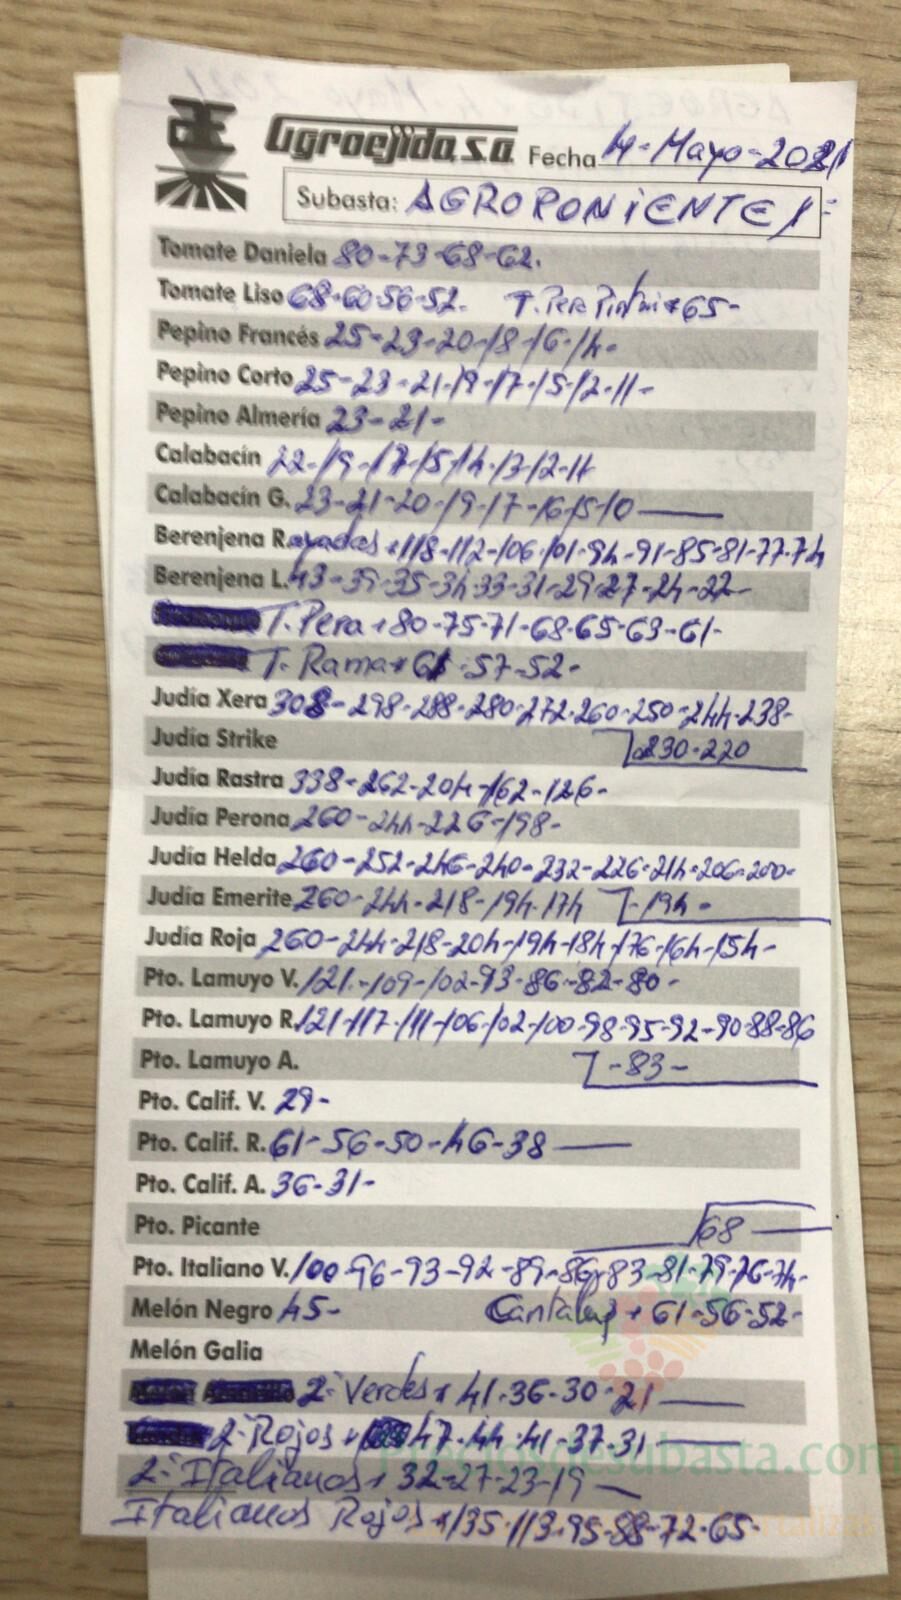 Agroejido, s.a. Fecha 14-Mayo-2021
Subasta: AGROPONIENTE/=
Tomate Daniela 80-73-68-62.
Tomate Liso 68-60-56-52. T. Pera Pintón * 65-
Pepino Francés 25-23-20-18-16-14-
Pepino Corto 25-23-21-19-17-15-12-11-
Pepino Almería 23-21-
Calabacín 22-19-17-15-14-13-12-11
Calabacín G. 23-21-20-19-17-16-15-10
Berenjena Rayadas * 118-112-106-101-94-91-85-81-77-74
Berenjena L. 43-39-35-34-33-31-29-27-24-22-
T. Pera * 80-75-71-68-65-63-61-
T. Rama * 61-57-52-
Judía Xera 308-298-288-280-272-260-250-244-238-
Judía Strike 230-220
Judía Rastra 338-262-204-162-126-
Judía Perona 260-244-226-198-
Judía Helda 260-252-246-240-232-226-214-206-200-
Judía Emerite 260-244-218-194-174 -194-
Judía Roja 260-244-218-204-194-184-176-164-154-
Pto. Lamuyo V. 121-109-102-93-86-82-80-
Pto. Lamuyo R. 121-117-111-106-102-100-98-95-92-90-88-86
Pto. Lamuyo A. -83-
Pto. Calif. V. 29-
Pto. Calif. R. 61-56-50-46-38
Pto. Calif. A. 36-31-
Pto. Picante 68
Pto. Italiano V. 100-96-93-92-89-86-83-81-79-76-74-
Melón Negro 45- Cantalup * 61-56-52-
Melón Galia
2ª Verdes * 41-36-30-21
2ª Rojos * 47-44-41-37-31
Preciosdesubasta.com
2ª Italianos * 32-27-23-19
Italianos Rojos * 135-113-95-88-72-65-